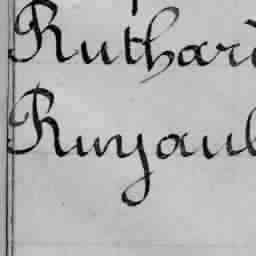 Ruthard
Ruyaul